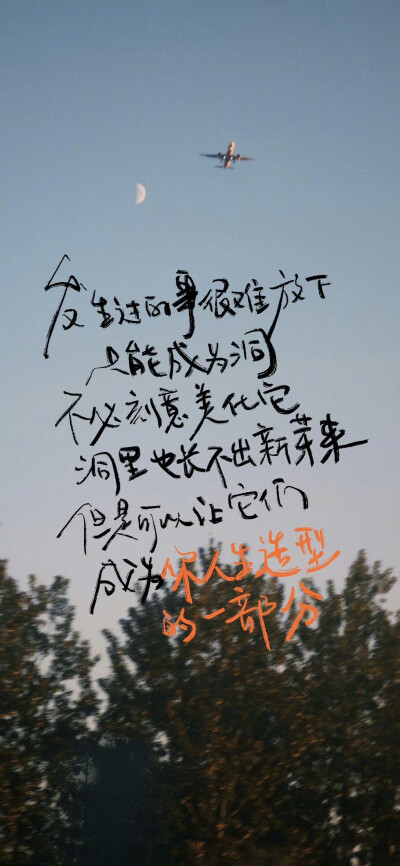 发生过的事很难放下
只能成为洞
不必刻意美化它
洞里也长不出新芽来
但是可以让它们
成为你人生造型
的一部分